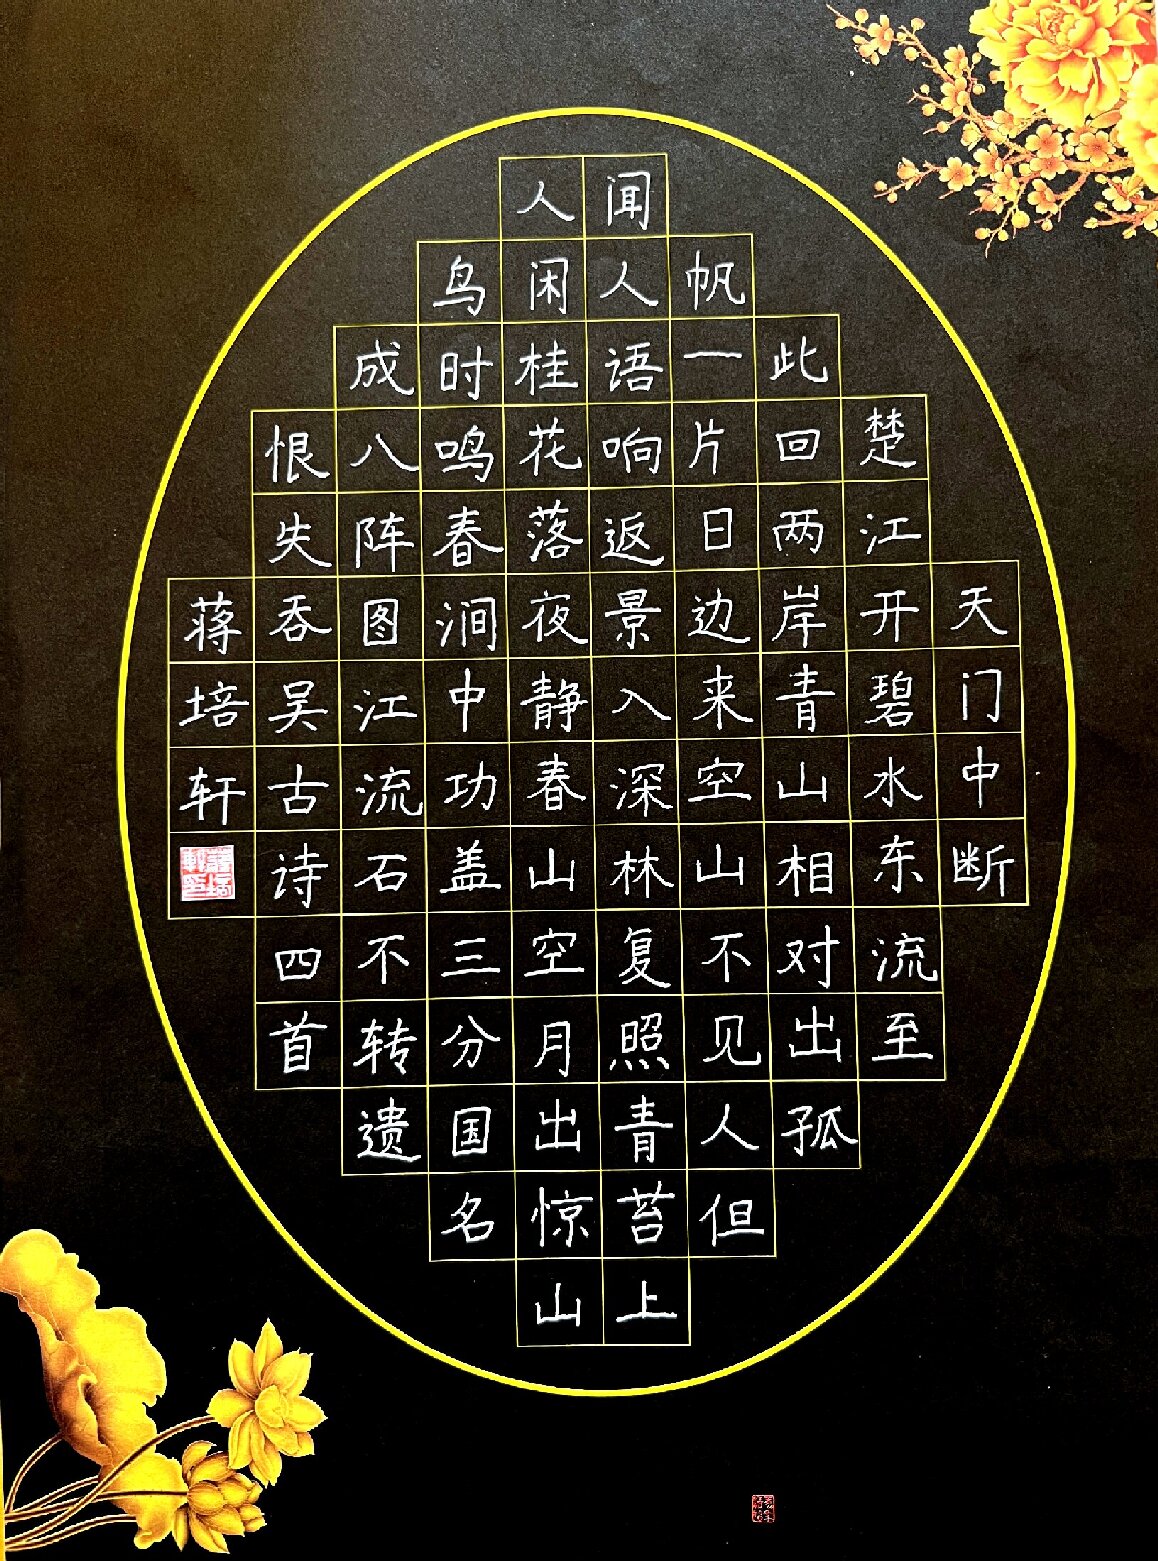 天门中断
楚江开碧水东流至
此回两岸青山相对出孤
帆一片日边来空山不见人但
闻人语响返景入深林复照青苔上
人闲桂花落夜静春山空月出惊山
鸟时鸣春涧中功盖三分国名
成八阵图江流石不转遗
恨失吞吴古诗四首
蒋培轩